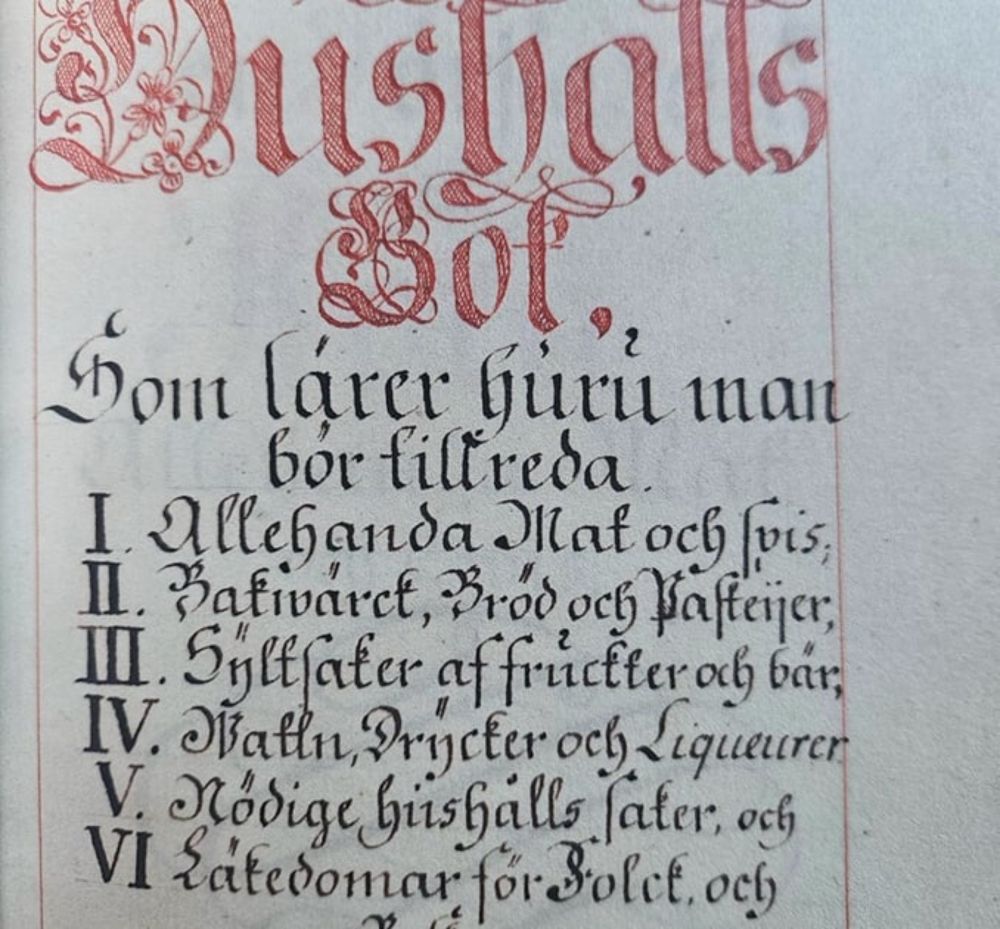 Hushalls
Bok,
Som lärer huru man
bör tillreda.
I. Allehanda Mat och spis;
II. Bakwärck, Bröd och Pasteijer,
III. Sÿltsaker af fruckter och bär;
IV. Wattn, Drÿcker och Liqueurer
V. Nödige hushålls saker, och
VI Läkedomar för Folck, och